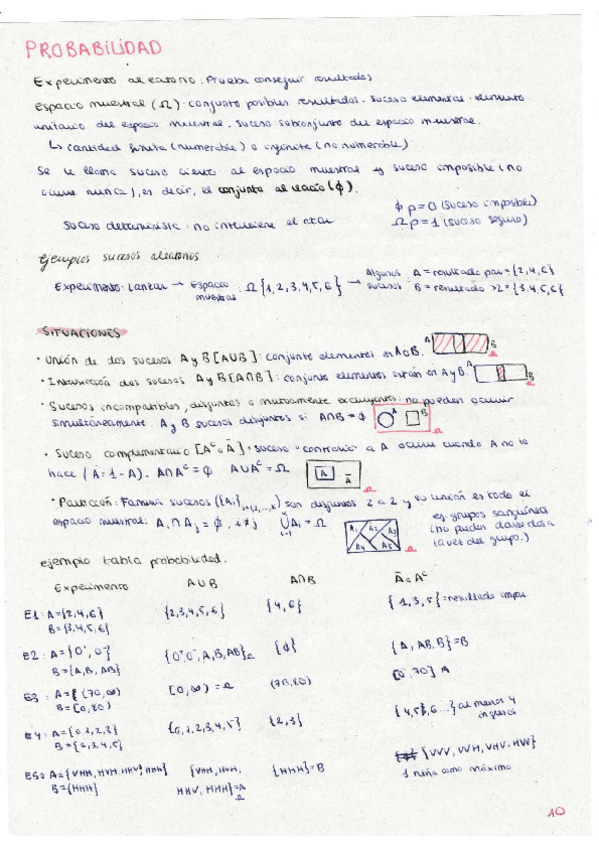 PROBABILIDAD
Experimento aleatorio: Prueba conseguir resultados
Espacio muestral (Ω): conjunto posibles resultados. Suceso elemental: elemento
unitario del espacio muestral. Suceso: subconjunto del espacio muestral.
↳ cantidad finita (numerable) o infinita (no numerable)
Se le llama suceso cierto al espacio muestral y suceso imposible (no
ocurre nunca), es decir, el conjunto al vacío (ϕ).
ϕ p=0 (suceso imposible)
Suceso determinista: no interviene el azar
Ω p=1 (suceso seguro)
Ejemplos sucesos aleatorios
Experimento: Lanzar → Espacio muestral: Ω {1,2,3,4,5,6} → Algunos sucesos: A = resultado par = {2,4,6}
B = resultado >2 = {3,4,5,6}
SITUACIONES
· Unión de dos sucesos A y B [A∪B]: conjunto elementos en A o B. A B Ω
· Intersección dos sucesos A y B [A∩B]: conjunto elementos están en A y B. A B Ω
· Sucesos incompatibles, disjuntos o mutuamente excluyentes: no pueden ocurrir
simultáneamente. A y B sucesos disjuntos si A∩B = ϕ A B Ω
· Suceso complementario [Aᶜ o Ā]: suceso "contrario" a A ocurre cuando A no lo
hace (Ā = 1 - A). A∩Aᶜ = ϕ A∪Aᶜ = Ω A Ā Ω
· Partición: Familia sucesos son disjuntos 2 a 2 y su unión es todo el
espacio muestral: Aᵢ ∩ Aⱼ = ϕ, i≠j ∪Aᵢ = Ω A₁ A₂ A₃ A₄ A₅ Ω
ej: grupos sanguíneos
(no pueden darse dos a
la vez del grupo.)
ejemplo tabla probabilidad.
Experimento A∪B A∩B Ā = Aᶜ
E1: A={2,4,6} {2,3,4,5,6} {4,6} {1,3,5} = resultado impar
B={3,4,5,6}
E2: A={0⁺,0⁻} {0⁺,0⁻,A,B,AB} Ω {ϕ} {A, AB, B} = B
B={A,B,AB}
E3: A=(70,∞) [0,∞) = Ω (70,80) [0,70] A
B=[0,80)
E4: A={0,1,2,3} {0,1,2,3,4,5} {2,3} {4,5,6...} al menos 4
B={2,3,4,5} ingresos
E5: A={VHH, HVH, HHV, HHH} {VHH, HVH, {HHH}=B {VVV, VVH, VHV, HVV}
B={HHH} HHV, HHH}=A 1 niña como máximo
Ω
10